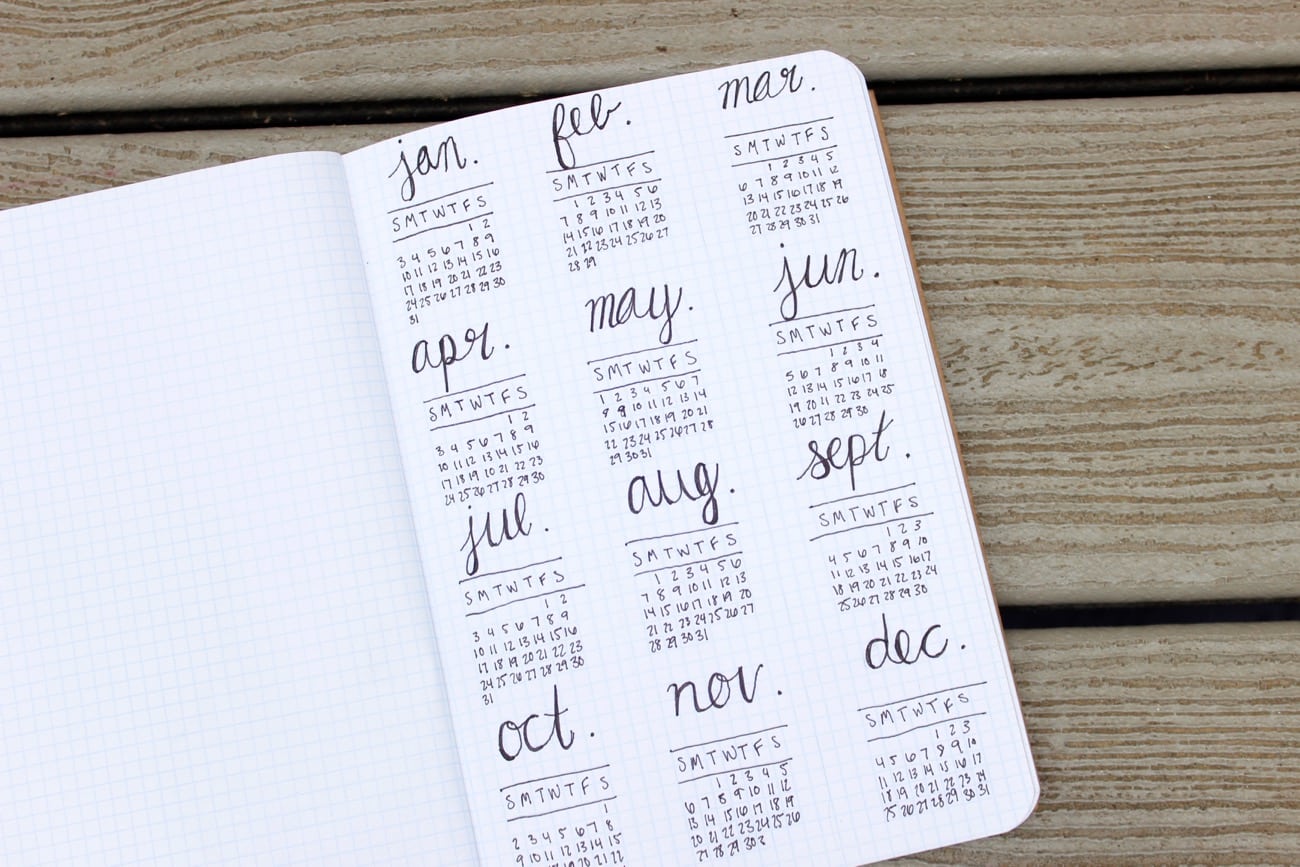 jan.
S M T W T F S
1 2
3 4 5 6 7 8 9
10 11 12 13 14 15 16
17 18 19 20 21 22 23
24 25 26 27 28 29 30
31
feb.
S M T W T F S
1 2 3 4 5 6
7 8 9 10 11 12 13
14 15 16 17 18 19 20
21 22 23 24 25 26 27
28 29
mar.
S M T W T F S
1 2 3 4 5
6 7 8 9 10 11 12
13 14 15 16 17 18 19
20 21 22 23 24 25 26
27 28 29 30 31
apr.
S M T W T F S
1 2
3 4 5 6 7 8 9
10 11 12 13 14 15 16
17 18 19 20 21 22 23
24 25 26 27 28 29 30
may.
S M T W T F S
1 2 3 4 5 6 7
8 9 10 11 12 13 14
15 16 17 18 19 20 21
22 23 24 25 26 27 28
29 30 31
jun.
S M T W T F S
1 2 3 4
5 6 7 8 9 10 11
12 13 14 15 16 17 18
19 20 21 22 23 24 25
26 27 28 29 30
jul.
S M T W T F S
1 2
3 4 5 6 7 8 9
10 11 12 13 14 15 16
17 18 19 20 21 22 23
24 25 26 27 28 29 30
31
aug.
S M T W T F S
1 2 3 4 5 6
7 8 9 10 11 12 13
14 15 16 17 18 19 20
21 22 23 24 25 26 27
28 29 30 31
sept.
S M T W T F S
1 2 3
4 5 6 7 8 9 10
11 12 13 14 15 16 17
18 19 20 21 22 23 24
25 26 27 28 29 30
oct.
S M T W T F S
1
2 3 4 5 6 7 8
9 10 11 12 13 14 15
20 21 22
nov.
S M T W T F S
1 2 3 4 5
6 7 8 9 10 11 12
13 14 15 16 17 18 19
20 21 22 23 24 25 26
27 28 29 30
dec.
S M T W T F S
1 2 3
4 5 6 7 8 9 10
11 12 13 14 15 16 17
18 19 20 21 22 23 24
25 26 27 28 29 30 31